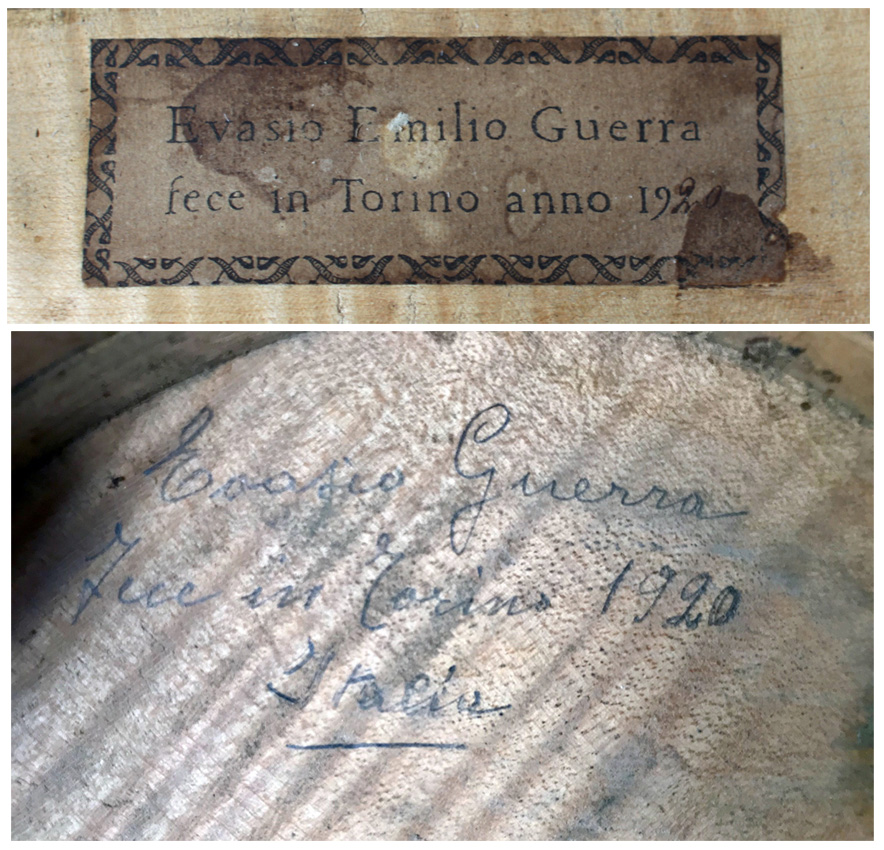 Evasio Emilio Guerra
fece in Torino anno 1920
Evasio Guerra
Fece in Torino 1920
Italia